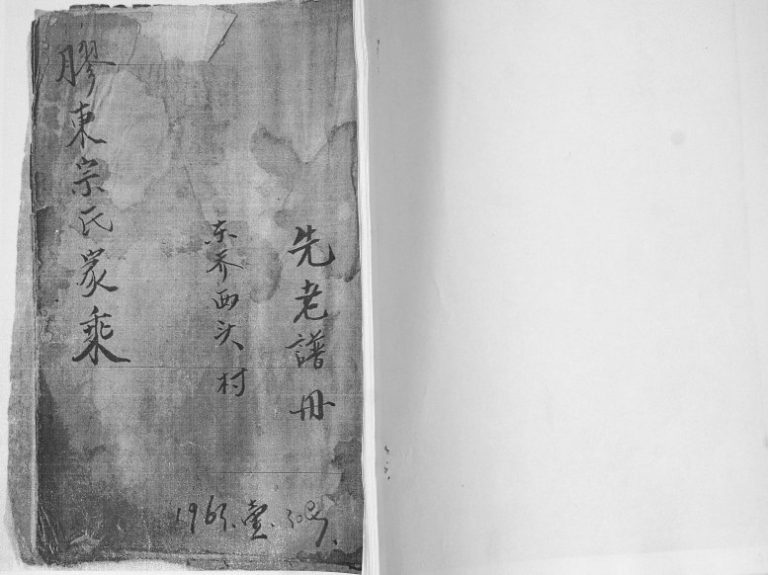 先老譜冊
东乔西头村
膠東宗氏家乘
1963.壹.30号.